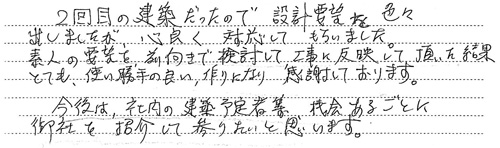 2回目の建築だったので 設計要望を 色々
出しましたが、心良く 対応して もらいました。
素人の要望を、前向きで検討して工事に反映して頂いた結果
とても、使い勝手の良い、作りになり 感謝しております。
今後は、社内の 建築予定者等 機会あるごとに
御社を 招介して参りたいと思います。